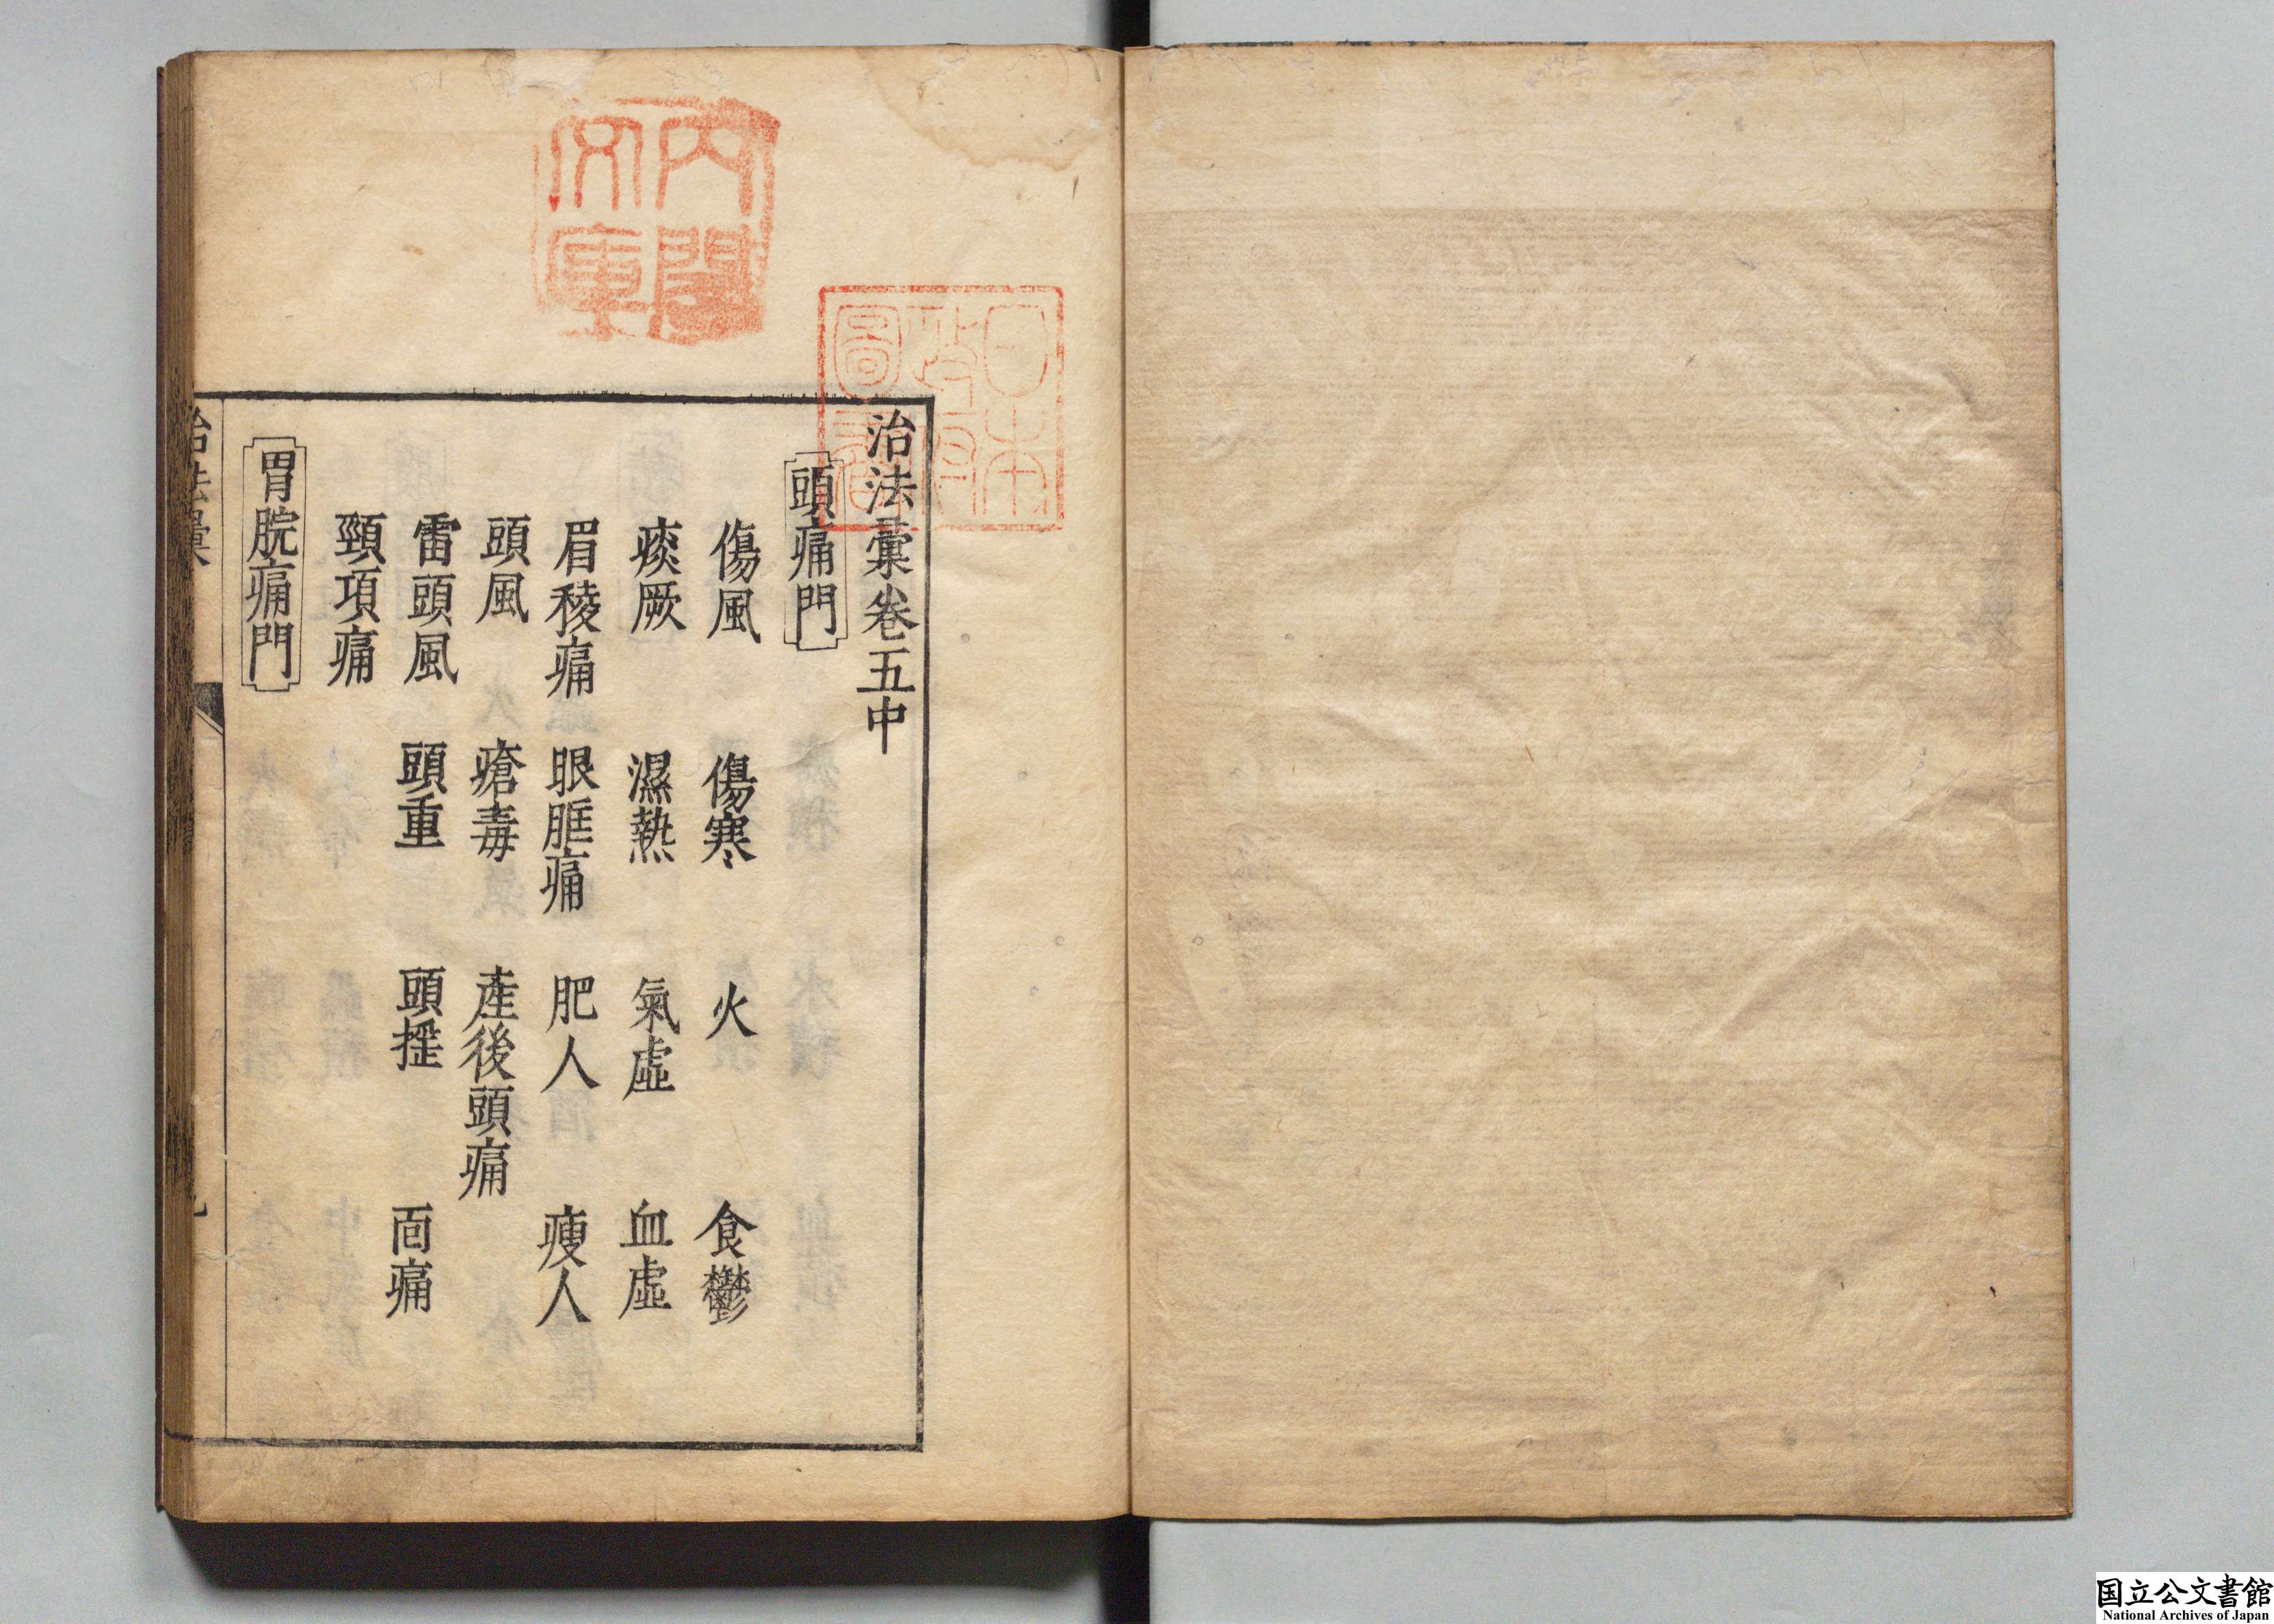 治法彙卷五中
頭痛門
傷風　傷寒　火　食鬱
痰厥　濕熱　氣虛　血虛
眉稜痛　眼眶痛　肥人　瘦人
頭風　瘡毒　產後頭痛
雷頭風　頭重　頭搖　面痛
頸項痛
胃脘痛門
治法彙
內閣文庫
日本政府圖書
国立公文書館
National Archives of Japan